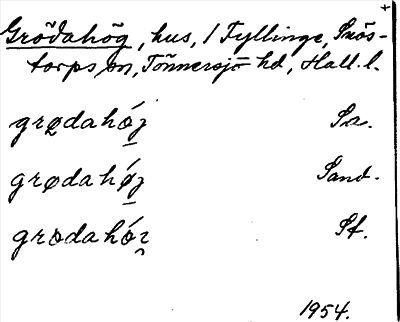 +
Grödahög, hus, / Fyllinge, Snös-
torps sn, Tönnersjö hd, Hall. l.
grødahǿj Sa.
grødahǿj Sand.
grødahǿɿ St.
1954.